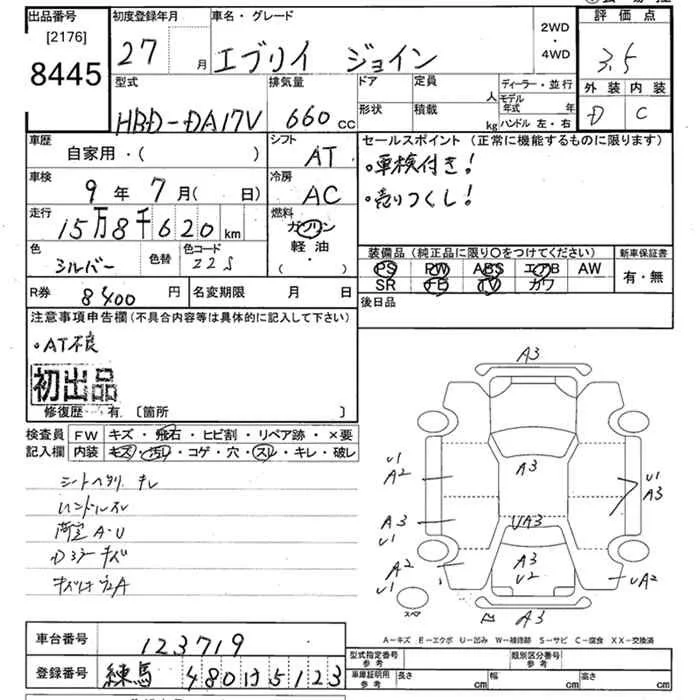 出品番号
[2176]
8445
初度登録年月
27 月
車名・グレード
エブリイ ジョイン
2WD
・
4WD
評価点
3.5
外装 内装
D C
型式
HBD-DA17V
排気量
660 cc
ドア
形状
定員 人
積載 kg
ディーラー・並行
モデル年式 年
ハンドル 左・右
車歴
自家用・( )
シフト
AT
車検
9年 7月( 日)
冷房
AC
走行
15万8千620 km
燃料
ガソリン
軽油
・( )
色
シルバー
色替
色コード
Z2S
セールスポイント(正常に機能するものに限ります)
・車検付き!
・売りつくし!
装備品(純正品に限り○をつけてください)
PS PW ABS エアB AW
SR FD TV カワ
新車保証書
有・無
R券 8400 円
名変期限 月 日
後日品
注意事項申告欄(不具合内容等は具体的に記入して下さい)
・AT不良
初出品
修復歴・有.〔箇所 〕
検査員
記入欄
FW キズ・飛石・ヒビ割・リペア跡・×要
内装 キズ・汚レ・コゲ・穴・スレ・キレ・破レ
ハンドルスレ
A3
U1
A2
A3
U1
A3
A3
U1
UA3
A2
U1
A3
U2
UA2
A3
スペア
A-キズ E-エクボ U-凹み W-補修跡 S-サビ C-腐食 XX-交換済
車台番号
123719
登録番号
練馬 480 け 5123
型式指定番号
参考
類別区分番号
参考
車庫証明用
参考
長さ cm
幅 cm
高さ cm